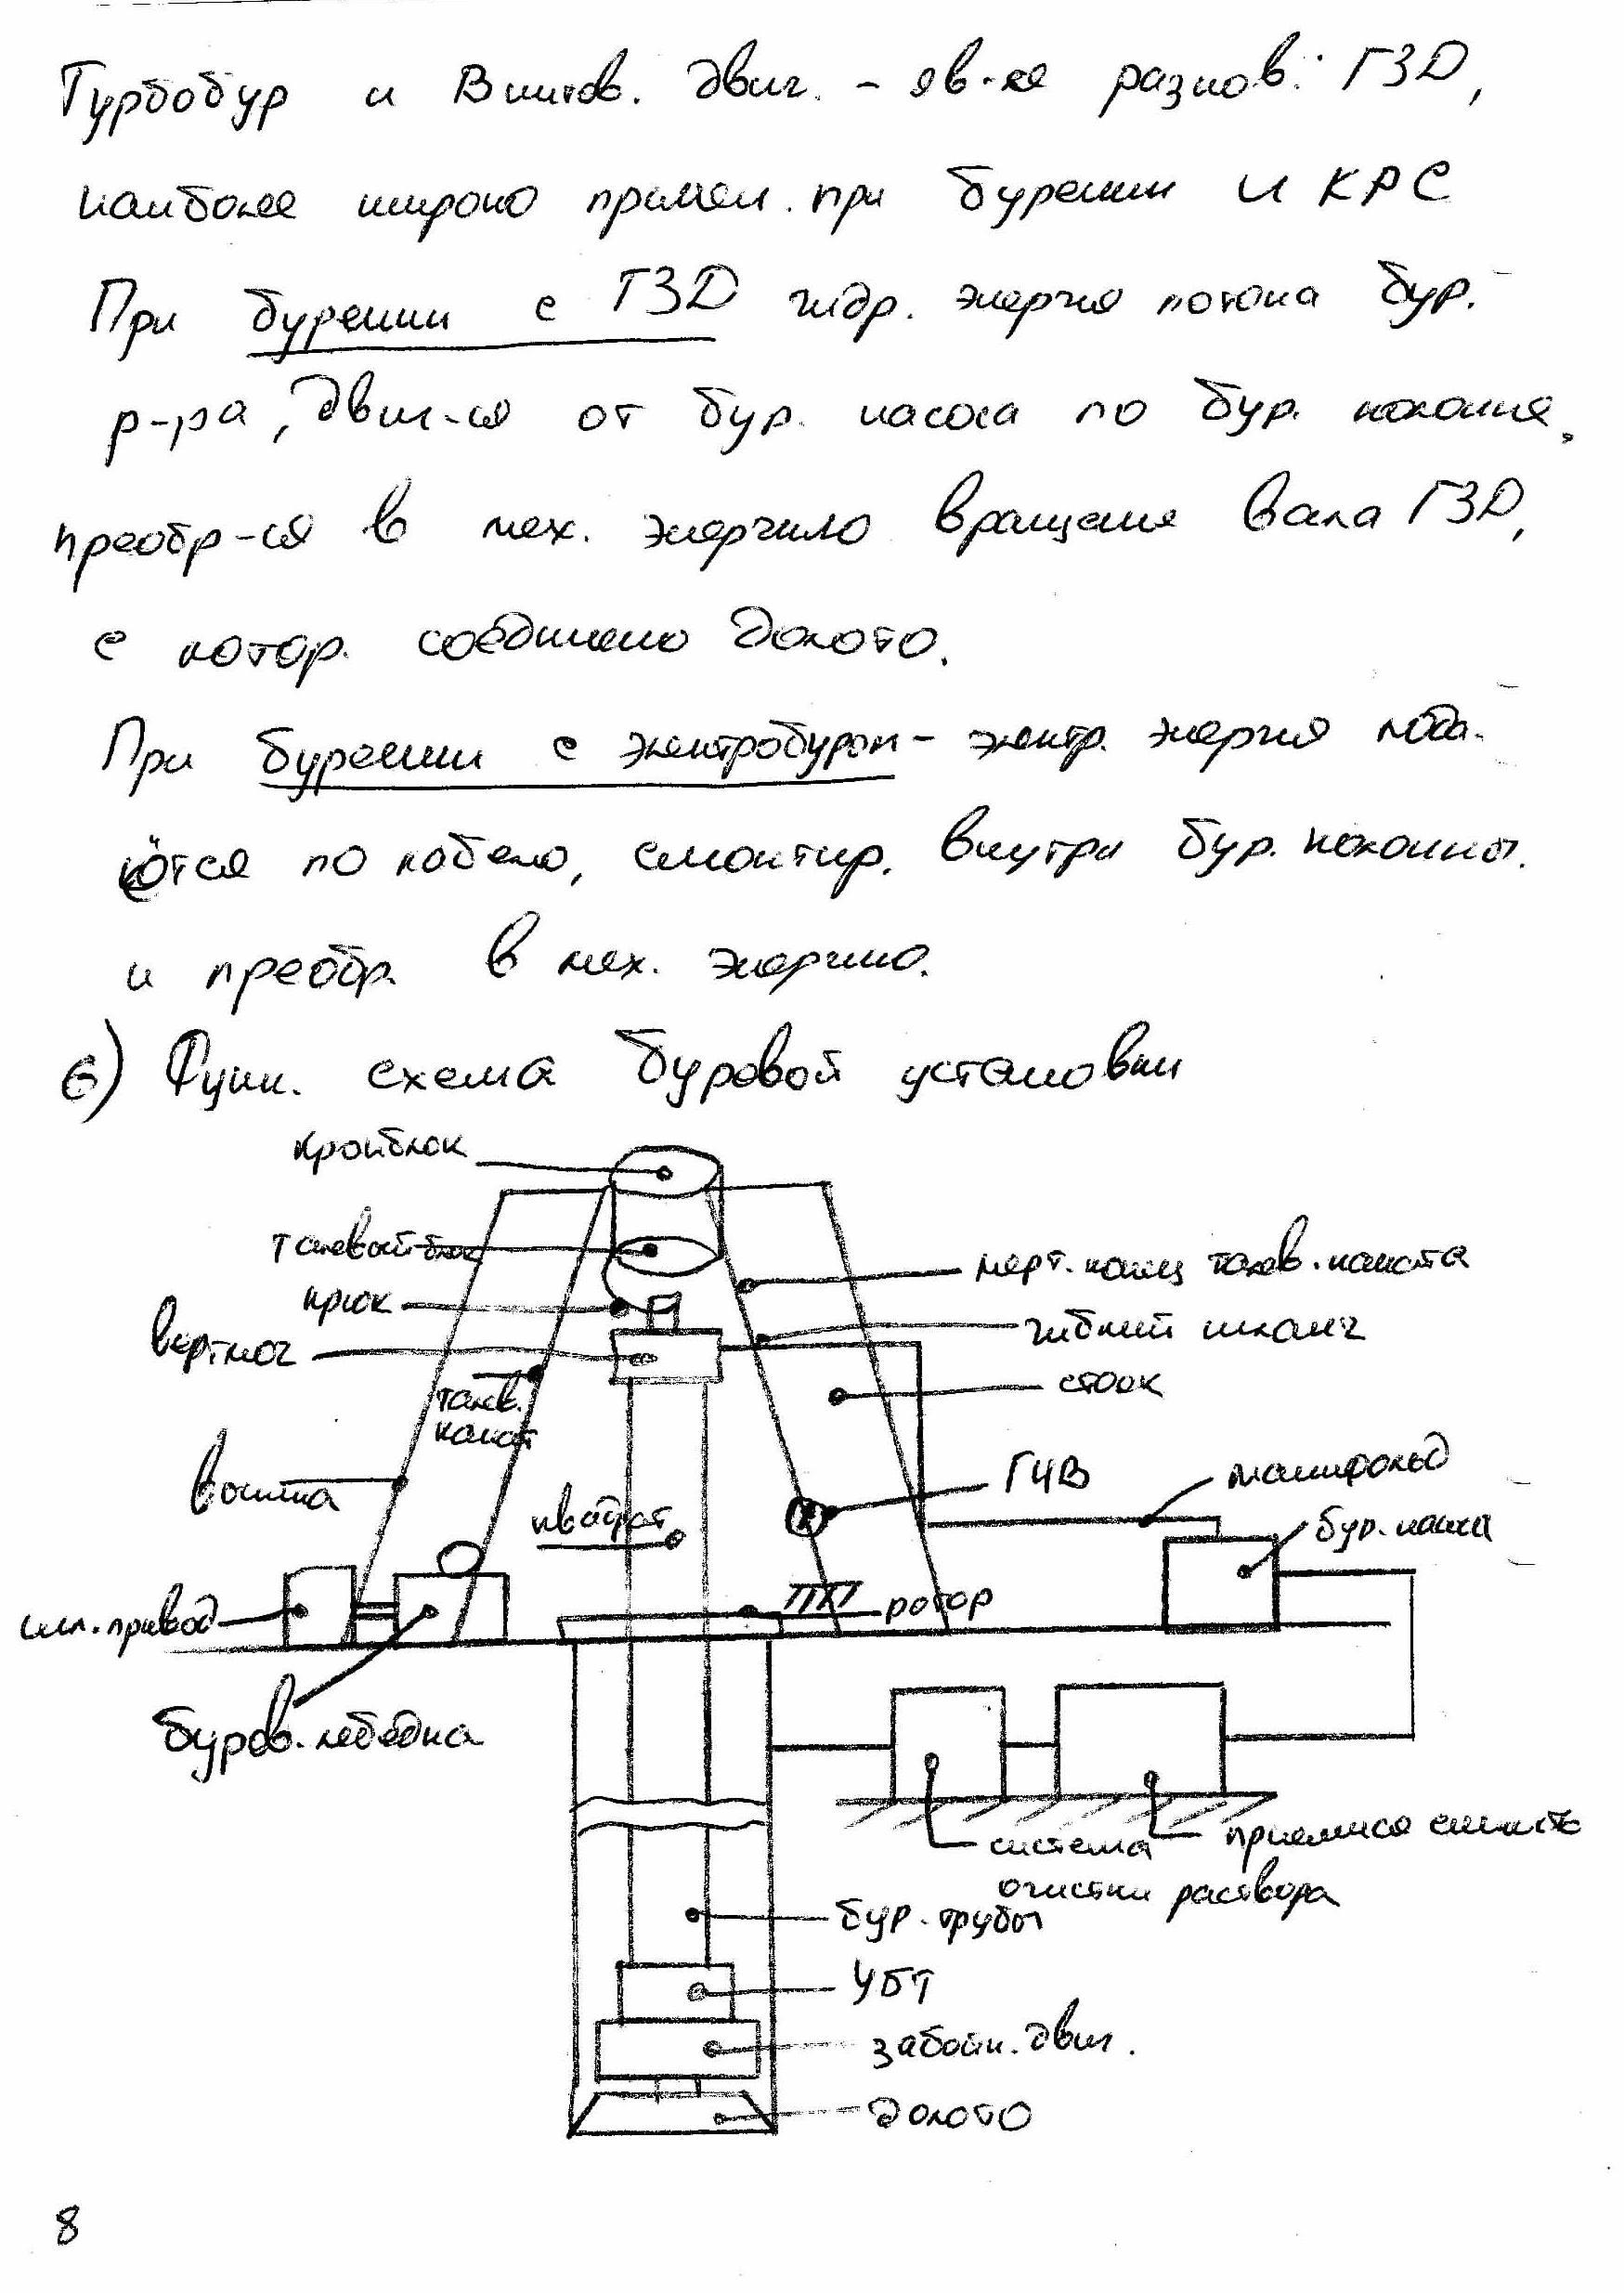 Турбобур и Винтов. двиг. - яв-ся разнов. ГЗД,
наиболее широко примен. при бурении и КРС
При бурении с ГЗД гидр. энергия потока бур.
р-ра, движ-ся от бур. насоса по бур. колонне,
преобр-ся в мех. энергию вращения вала ГЗД,
с котор. соединено долото.
При бурении с электробуром - электр. энергия пода-
ётся по кабелю, смонтир. внутри бур. колонны.
и преобр. в мех. энергию.
6) Функ. схема буровой установки
кронблок
талевый блок
мерт. конец талев. каната
крюк
гибкий шланг
вертлюг
стояк
талев.
канат
ГИВ
манифольд
вышка
квадрат
бур. насос
сил. привод
ротор
буров. лебедка
система
очистки раствора
приемная емкость
бур. трубы
УБТ
забойн. двиг.
долото
8